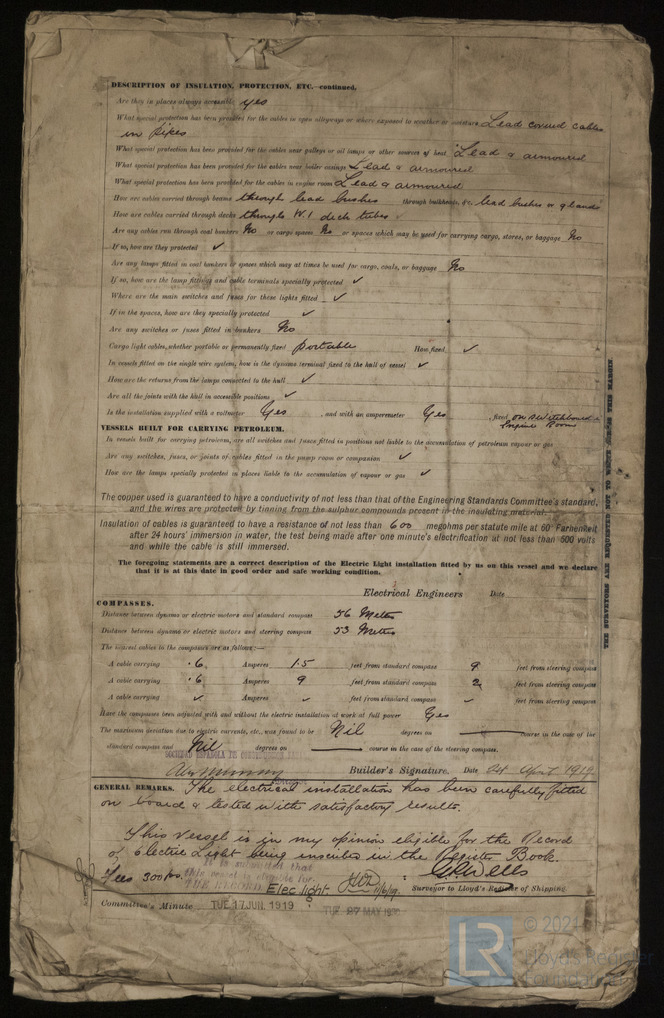 DESCRIPTION OF INSULATION, PROTECTION, ETC.—continued.
Are they in places always accessible yes
What special protection has been provided for the cables in open alleyways or where exposed to weather or moisture Lead covered cables
in pipes
What special protection has been provided for the cables near galleys or oil lamps or other sources of heat Lead & armoured
What special protection has been provided for the cables near boiler casings Lead & armoured
What special protection has been provided for the cables in engine room Lead & armoured
How are cables carried through beams through lead bushes through bulkheads, &c. lead bushes or glands
How are cables carried through decks through W.I deck tubes
Are any cables run through coal bunkers No or cargo spaces No or spaces which may be used for carrying cargo, stores, or baggage No
If so, how are they protected ✓
Are any lamps fitted in coal bunkers or spaces which may at times be used for cargo, coals, or baggage No
If so, how are the lamp fittings and cable terminals specially protected ✓
Where are the main switches and fuses for these lights fitted ✓
If in the spaces, how are they specially protected ✓
Are any switches or fuses fitted in bunkers No
Cargo light cables, whether portable or permanently fixed portable How fixed ✓
In vessels fitted on the single wire system, how is the dynamo terminal fixed to the hull of vessel ✓
How are the returns from the lamps connected to the hull ✓
Are all the joints with the hull in accessible positions ✓
Is the installation supplied with a voltmeter Yes , and with an amperemeter Yes , fixed on Switchboard
Engine Room
VESSELS BUILT FOR CARRYING PETROLEUM.
In vessels built for carrying petroleum, are all switches and fuses fitted in positions not liable to the accumulation of petroleum vapour or gas
Are any switches, fuses, or joints of cables fitted in the pump room or companion ✓
How are the lamps specially protected in places liable to the accumulation of vapour or gas ✓
The copper used is guaranteed to have a conductivity of not less than that of the Engineering Standards Committee's standard,
and the wires are protected by tinning from the sulphur compounds present in the insulating material.
Insulation of cables is guaranteed to have a resistance of not less than 600 megohms per statute mile at 60° Farhenheit
after 24 hours' immersion in water, the test being made after one minute's electrification at not less than 500 volts
and while the cable is still immersed.
The foregoing statements are a correct description of the Electric Light installation fitted by us on this vessel and we declare
that it is at this date in good order and safe working condition.
Electrical Engineers Date
COMPASSES.
Distance between dynamo or electric motors and standard compass 56 Metres
Distance between dynamo or electric motors and steering compass 53 Metres
The nearest cables to the compasses are as follows:—
A cable carrying .6 Amperes 1.5 feet from standard compass 9 feet from steering compass
A cable carrying .6 Amperes 9 feet from standard compass 2 feet from steering compass
A cable carrying ✓ Amperes ✓ feet from standard compass ✓ feet from steering compass
Have the compasses been adjusted with and without the electric installation at work at full power Yes
The maximum deviation due to electric currents, etc., was found to be Nil degrees on — course in the case of the
standard compass and Nil degrees on — course in the case of the steering compass.
SOCIEDAD ESPAÑOLA DE
Builder's Signature. Date April 1919
GENERAL REMARKS. The electrical installation has been carefully fitted
on board & tested with satisfactory results.
This vessel is in my opinion eligible for the Record
of Electric Light being inserted in the Register Book.
It is submitted that
this vessel is eligible for
THE RECORD. Elec light
Fees 300
Surveyor to Lloyd's Register of Shipping.
Committee's Minute TUE 17 JUN. 1919
TUE 27 MAY
THE SURVEYORS ARE REQUESTED NOT TO WRITE ACROSS THIS MARGIN.
LR
© 2021
Lloyd's Register
Foundation